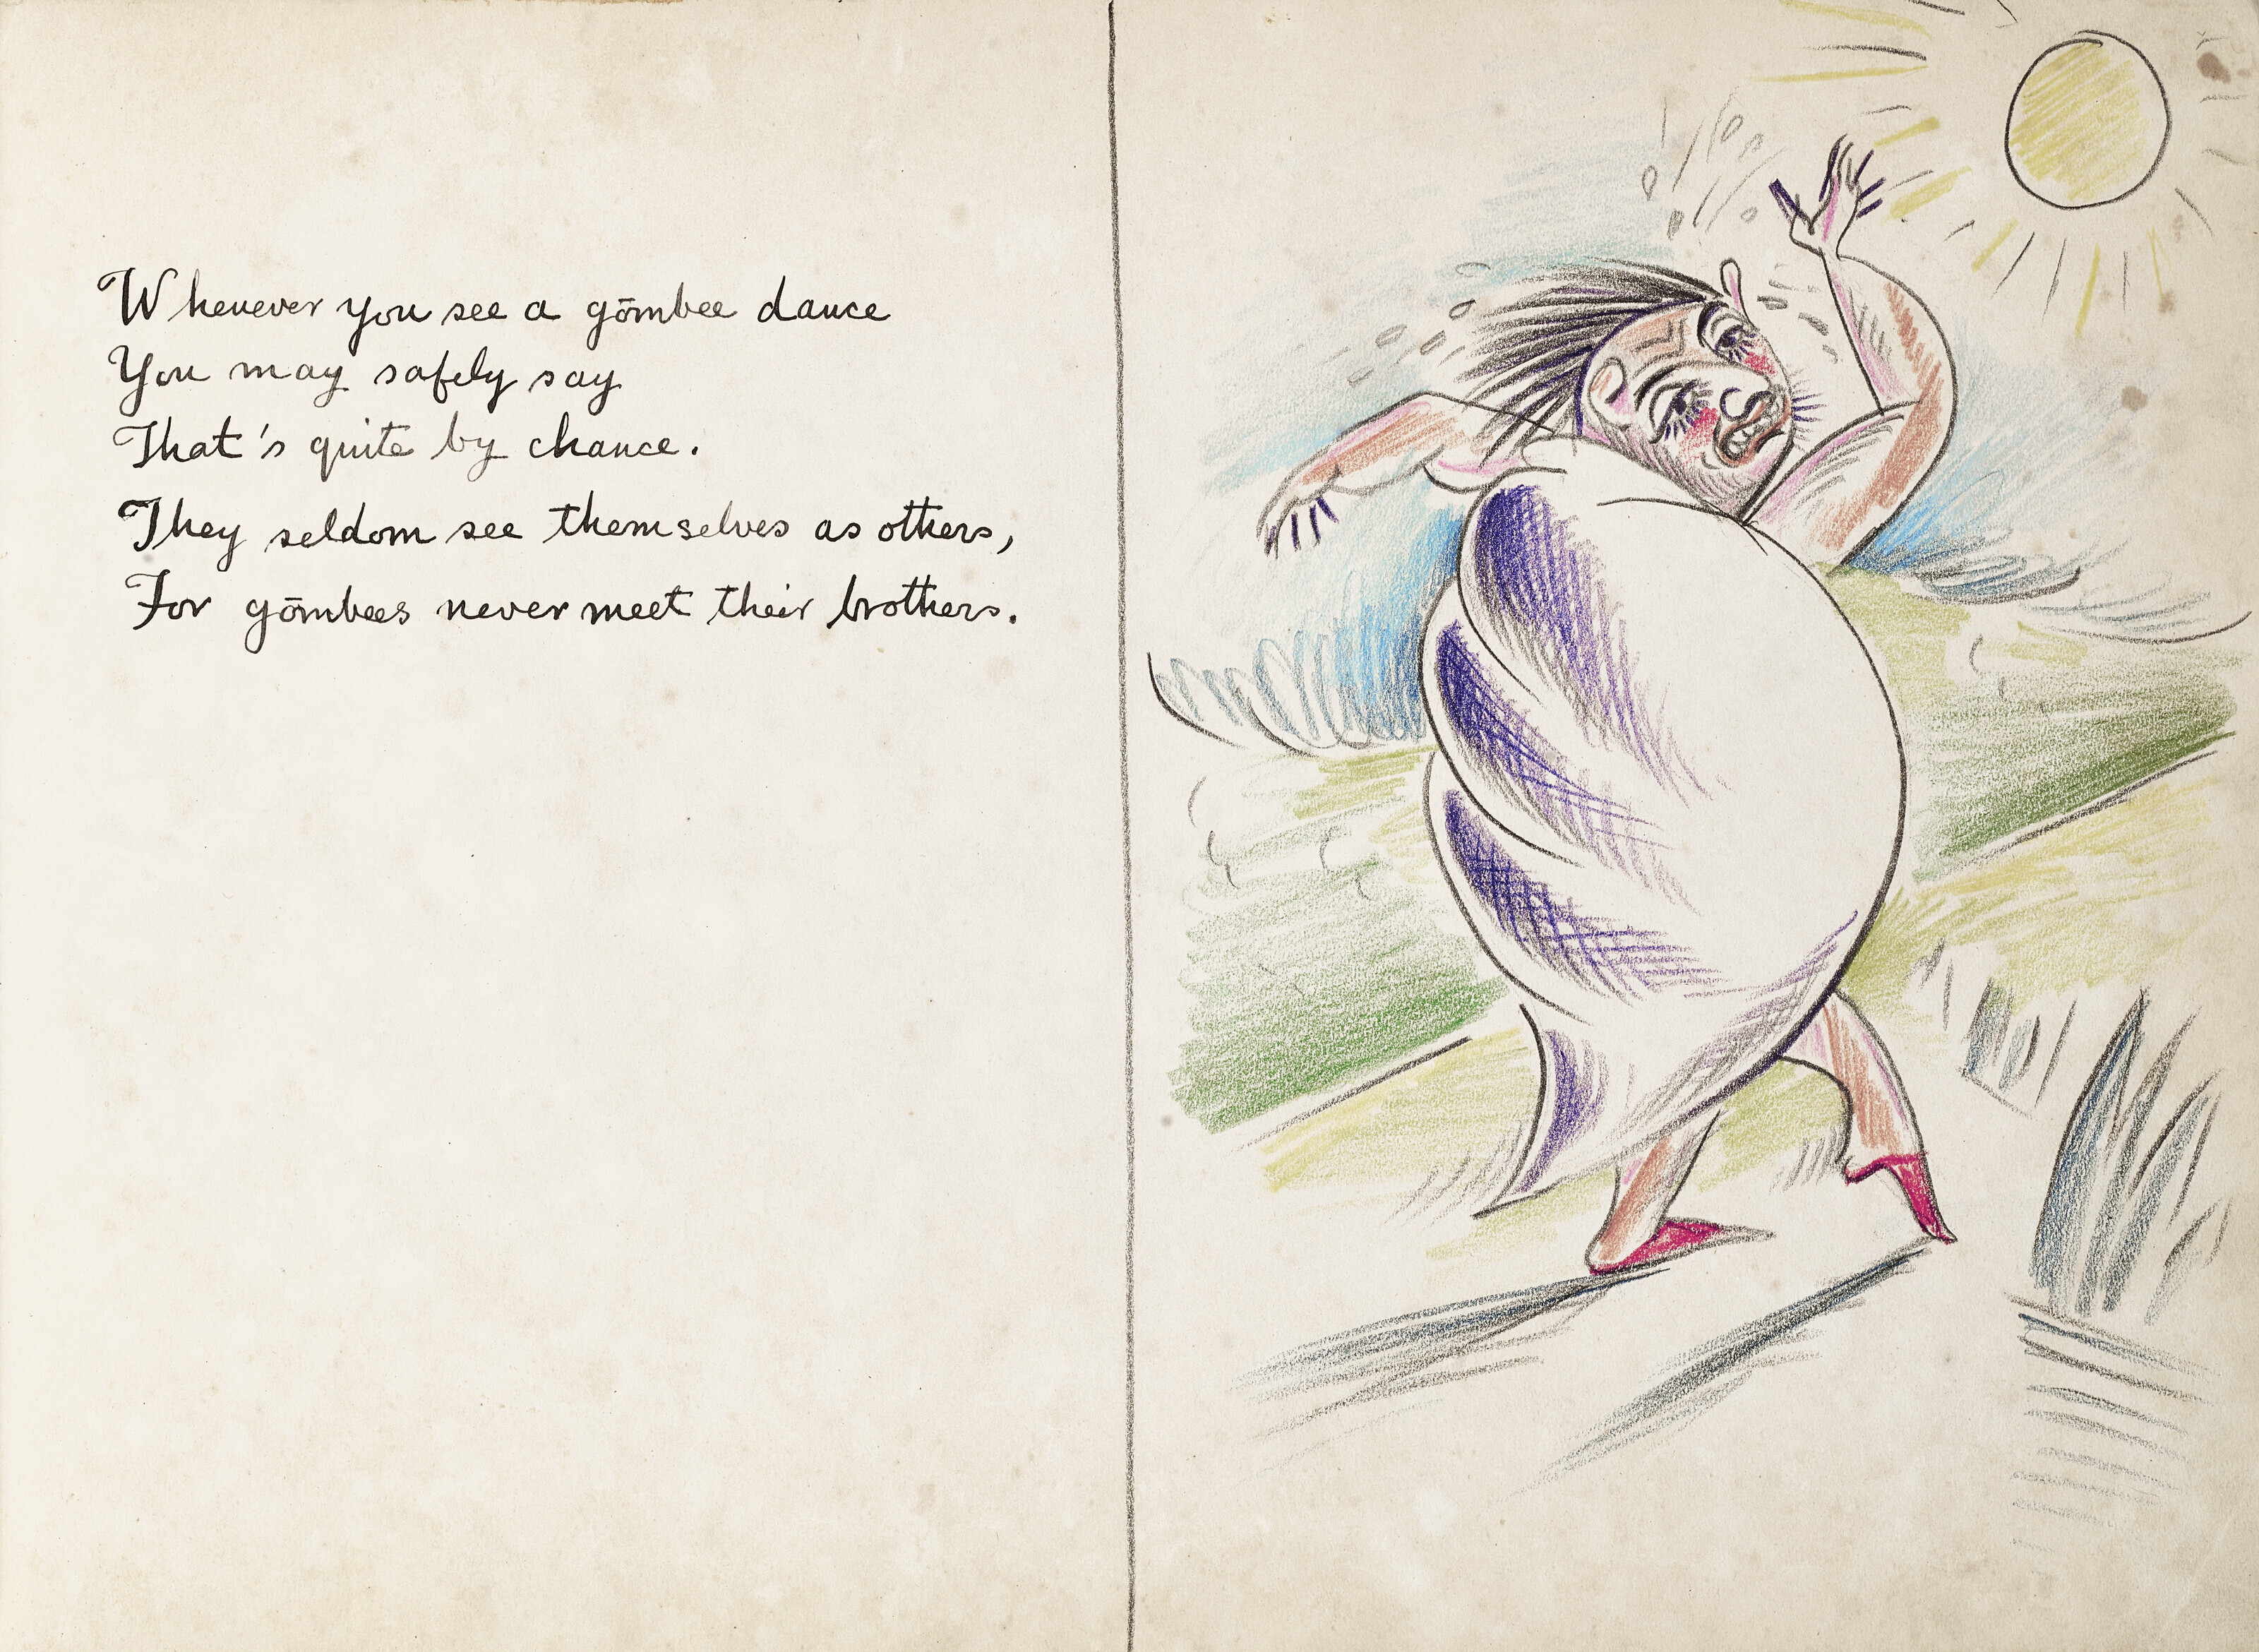 Whenever you see a gōmbee dance
You may safely say
That's quite by chance.
They seldom see themselves as others,
For gōmbees never meet their brothers.